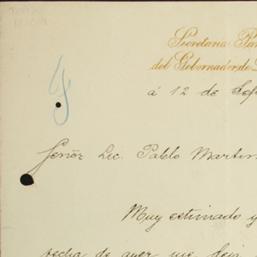 Secretaria Par
del Gobernador de
á 12 de Sep
Señor Lic. Pablo Martin
Muy estimado y
fecha de ayer me